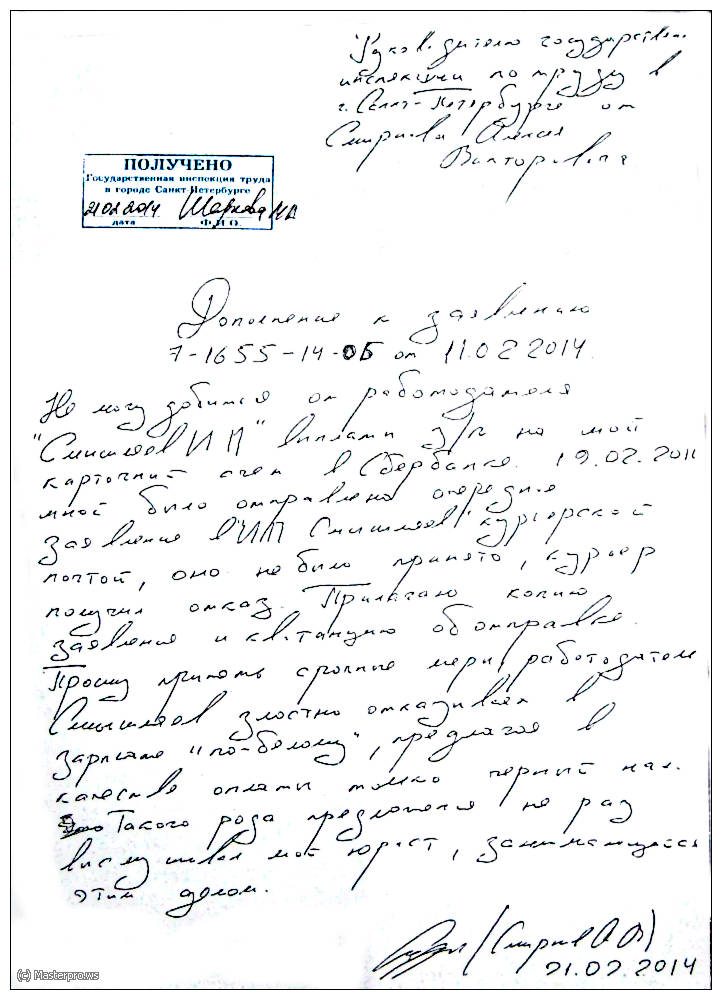 Руководителю государствен.
инспекции по труду в
г. Санкт-Петербурге от
Смирнова Алексея
Викторовича
ПОЛУЧЕНО
Государственная инспекция труда
в городе Санкт-Петербурге
21.02.2014 Шаркова
дата Ф.И.О.
Дополнение к заявлению
7-1655-14-ОБ от 11.02.2014.
Не могу добится от работодателя
"Смышляев ИП" выплаты з/п на мой
карточный счет в Сбербанке. 19.02.
мной было отправлено очередное
заявление в "ИП Смышляев" курьерской
почтой, оно не было принято, курьер
получил отказ. Прилагаю копию
заявления и квитанцию об отправке.
Прошу принять срочные меры, работодатель
Смышляев злостно отказывает в
зарплате "по-белому", предлагая в
качестве оплаты только черный нал.
Такого рода предложения не раз
выслушивал мой юрист, занимающийся
этим делом.
(Смирнов А.В)
21.02.2014
(c) Masterpro.ws